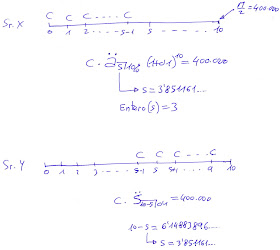 Π/2 = 400.000
Sr. X
C C C ..... C
0 1 2 .... s-1 s 10
C · ä s⌉0'1 · (1+0'1)^10 = 400.000
s = 3'851161...
Entero(s) = 3
Sr. Y
C C C ... C
0 1 2 3 ... s-1 s s+1 ... 9 10
C · S̈ 10-s⌉0'1 = 400.000
10-s = 6'14883896...
s = 3'851161...